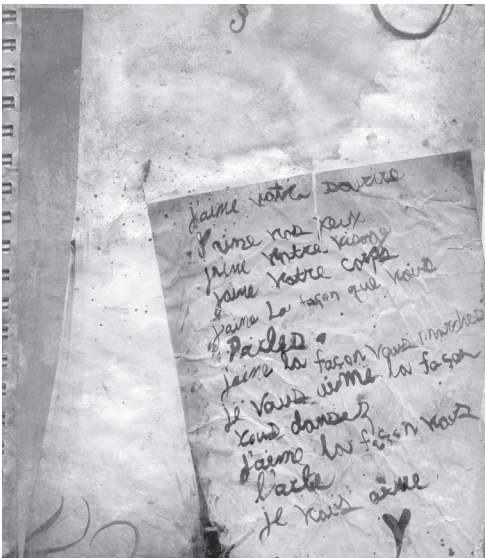 j'aime votre sourire
j'aime vos yeux
j'aime votre visage
j'aime votre corps
j'aime la façon que vous
Parlez.
j'aime la façon vous marchez
je vous aime la façon
vous dansez
j'aime la façon vous
l'acte
je vous aime